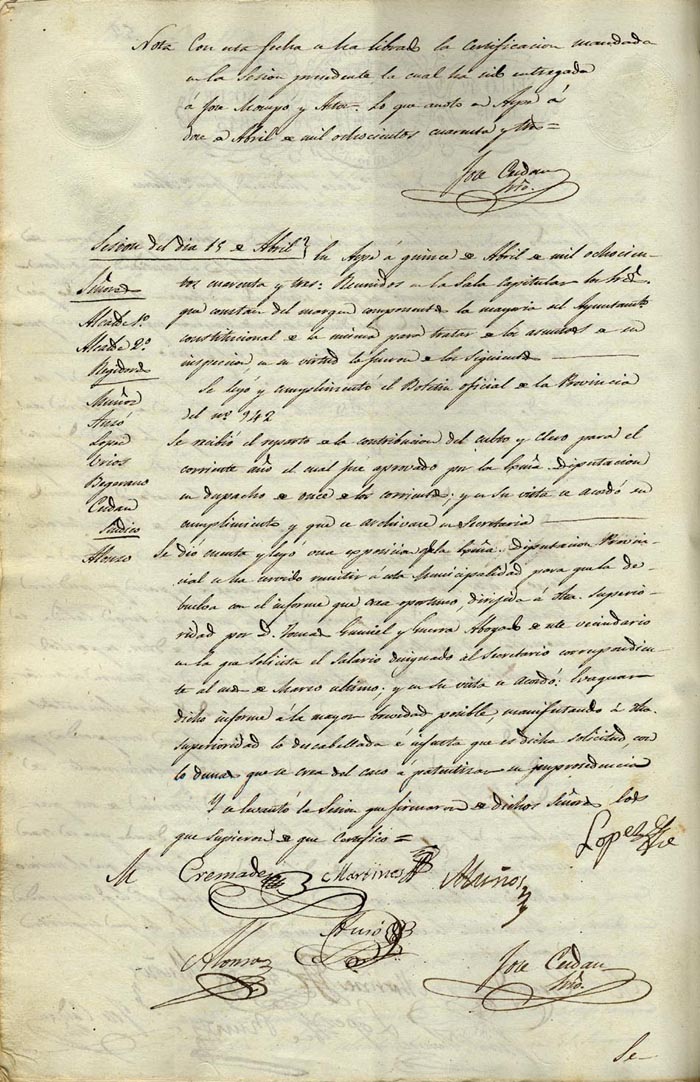 Nota Con esta fecha se ha librado la Certificacion mandada
en la Sesion precedente la cual ha sido entregada
á Jose y Lo que anoto en Aspe á
doce de Abril de mil ochocientos cuarenta y tres=
Jose Cerdan
Srio.
Sesion del dia 15 de Abril
Señores
Alcalde 1º
Alcalde 2º
Regidores
Muñoz
Aucó
Lopez
Urios
Bejerano
Cerdan
Sindico
Alonso
En Aspe á quince de Abril de mil ochocien-
tos cuarenta y tres: Reunidos en la Sala Capitular los Sres.
que constan del margen componentes la mayoria del Ayuntamto
constitucional de la misma para tratar de los asuntos de su
inspeccion, en su virtud lo fueron de los siguientes
Se leyó y cumplimento el Boletin oficial de la Provincia
del nº 142
Se recibió el reparto de la contribucion del culto y clero para el
corriente año el cual fué aprovado por la Diputacion
en despacho de once de los corrientes; y en su vista se acordó su
cumplimiento y que se archivase en Secretaria
Se dió cuenta y leyó una exposicion qe la Diputacion Provin-
cial se ha servido remitir á esta Municipalidad para que la de-
buelva con el informe que crea oportuno, dirijida á dha. Superio-
ridad por D. Tomas y Guerra Abogado de este vecindario
en la que solicita el salario designado al Secretario correspondien-
te al mes de Marzo ultimo: y en su vista se acordó: Evaquar
dicho informe á la mayor brevedad posible, manifestando á dha.
superioridad lo descabellada é injusta que es dicha solicitud, con
lo demas que se crea del caso á patentizar su improcedencia
Y se levantó la Sesion que firmaron de dichos Señores los
que supieron de que certifico=
Lopez
M Cremades Martinez Muños
Alonso Aucó
Jose Cerdan
Srio.
Se-